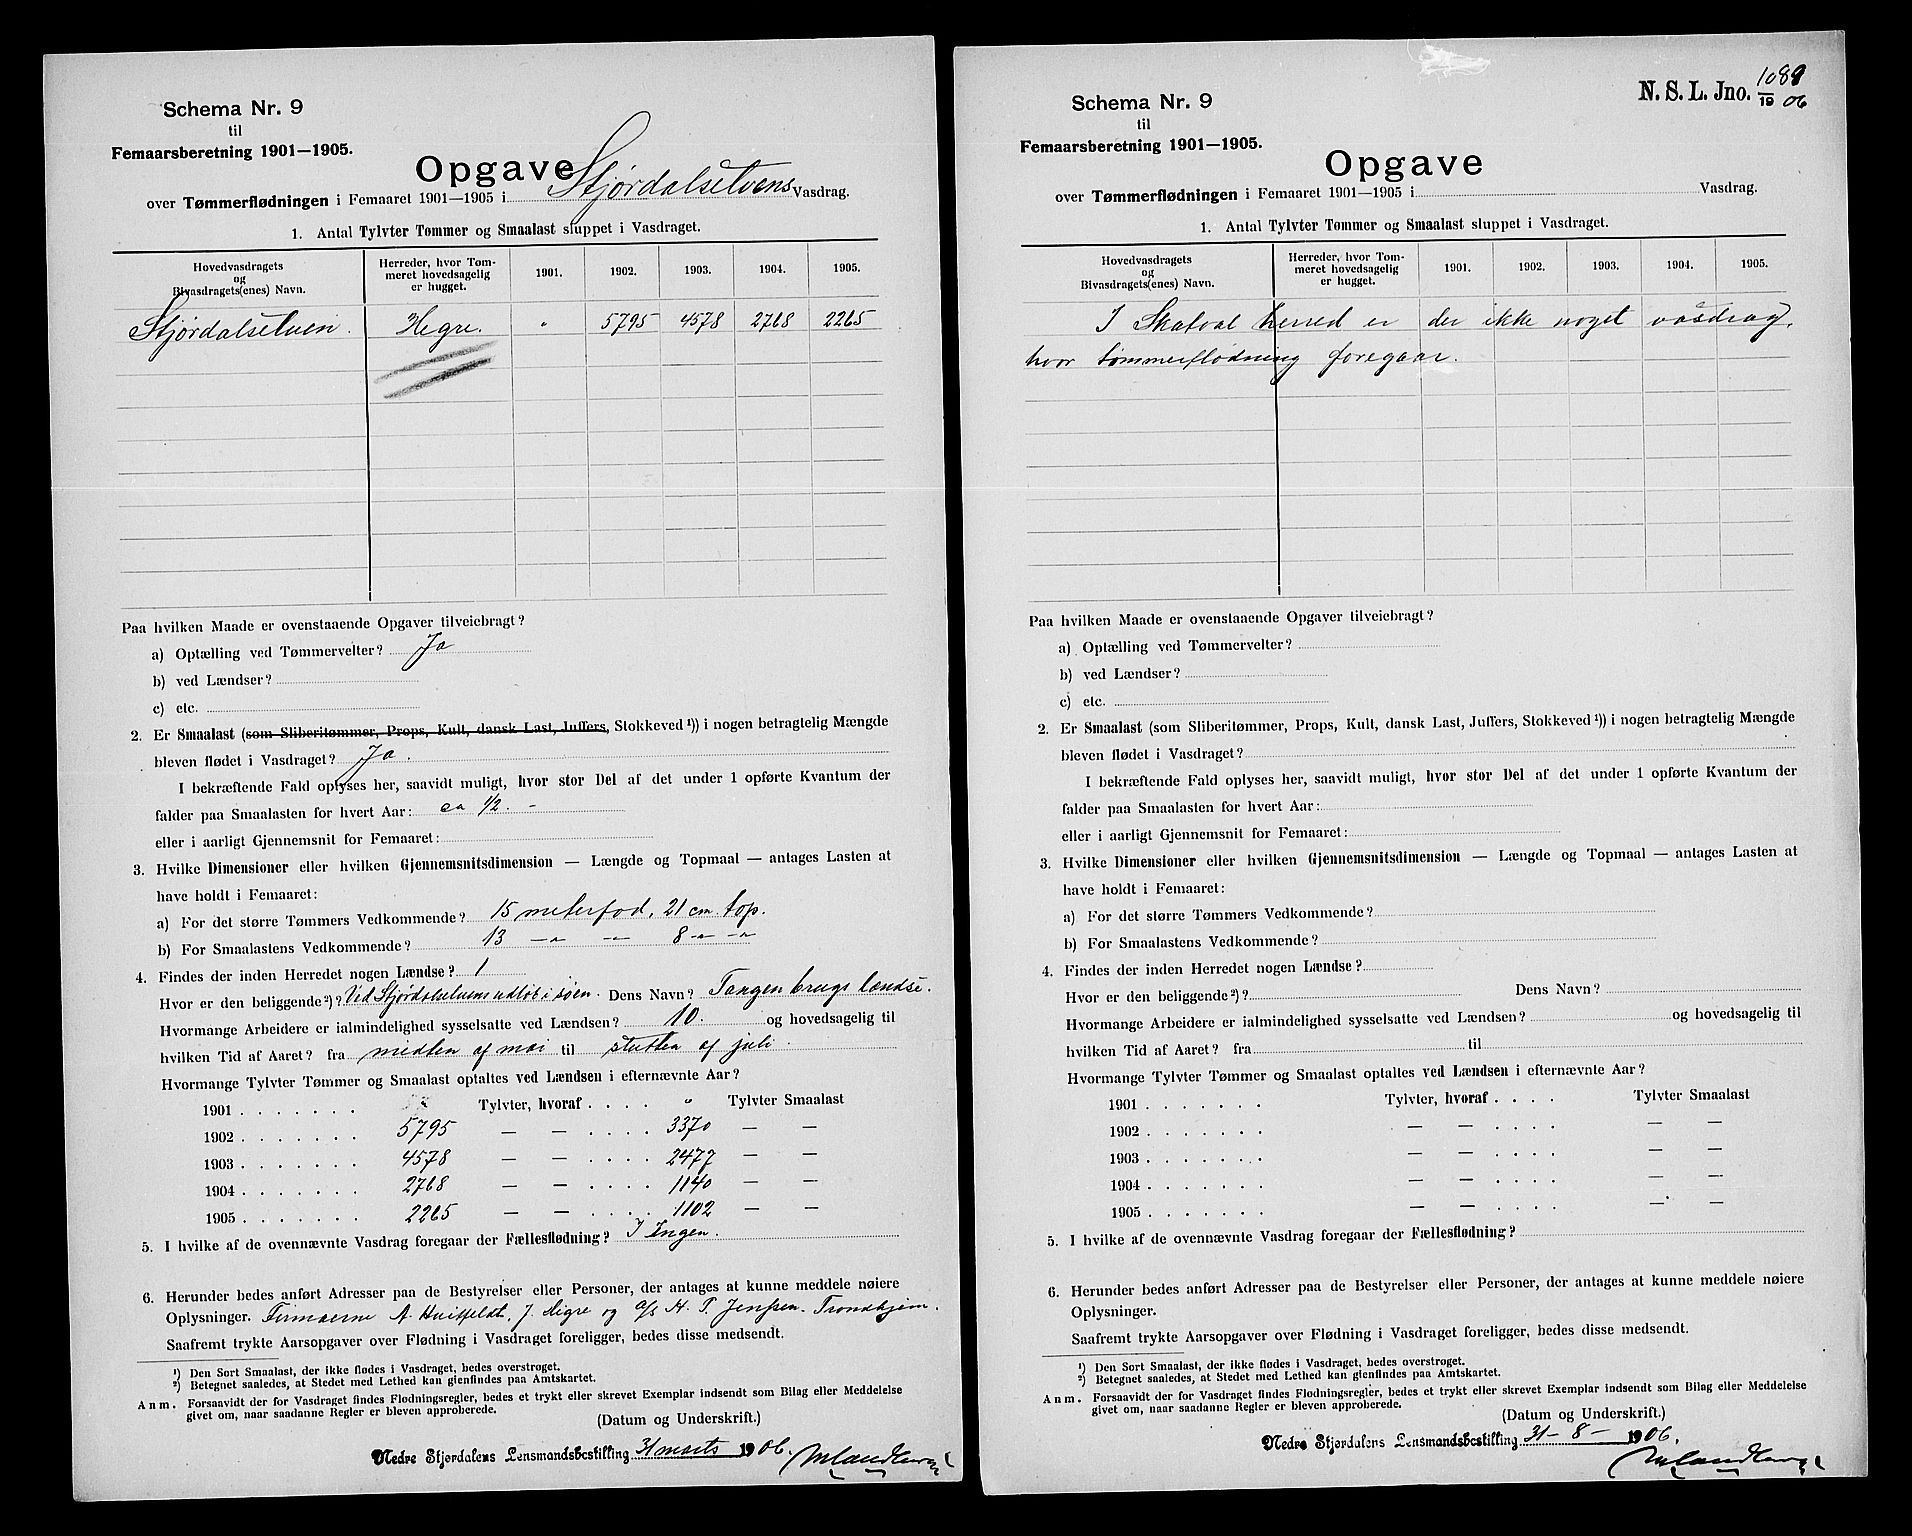 Schema Nr. 9
til
Femaarsberetning 1901—1905.
Opgave
over Tømmerflødningen i Femaaret 1901—1905 i Stjørdalselvens Vasdrag.
1. Antal Tylvter Tømmer og Smaalast sluppet i Vasdraget.
Hovedvasdragets og Bivasdragets(enes) Navn. Herreder, hvor Tømmeret hovedsagelig er hugget. 1901. 1902. 1903. 1904. 1905.
Stjørdalselven. Hegre. " 5795 4578 2768 2265
Paa hvilken Maade er ovenstaaende Opgaver tilveiebragt?
a) Optælling ved Tømmervelter? Ja
b) ved Lændser?
c) etc.
2. Er Smaalast (som Sliberitømmer, Props, Kult, dansk Last, Juffers, Stokkeved ¹)) i nogen betragtelig Mængde
bleven flødet i Vasdraget? Ja.
I bekræftende Fald oplyses her, saavidt muligt, hvor stor Del af det under 1 opførte Kvantum der
falder paa Smaalasten for hvert Aar: ca 1/2. -
eller i aarligt Gjennemsnit for Femaaret:
3. Hvilke Dimensioner eller hvilken Gjennemsnitsdimension — Længde og Topmaal — antages Lasten at
have holdt i Femaaret:
a) For det større Tømmers Vedkommende? 15 meterfod, 21 cm. top.
b) For Smaalastens Vedkommende? 13 -"- -"- 8 -"- -"-
4. Findes der inden Herredet nogen Lændse? 1
Hvor er den beliggende²)? Ved Stjørdalselvens udløb i søen. Dens Navn? Tangen brugs lændse.
Hvormange Arbeidere er ialmindelighed sysselsatte ved Lændsen? 10. og hovedsagelig til
hvilken Tid af Aaret? fra midten af mai til slutten af juli.
Hvormange Tylvter Tømmer og Smaalast optaltes ved Lændsen i efternævnte Aar?
1901 . . . . . . . " Tylvter, hvoraf . . . . " Tylvter Smaalast
1902 . . . . . . . 5795 — — . . . . 3370 — —
1903 . . . . . . . 4578 — — . . . . 2477 — —
1904 . . . . . . . 2768 — — . . . . 1140 — —
1905 . . . . . . . 2265 — — . . . . 1102 — —
5. I hvilke af de ovennævnte Vasdrag foregaar der Fællesflødning? I Ingen.
6. Herunder bedes anført Adresser paa de Bestyrelser eller Personer, der antages at kunne meddele nøiere
Oplysninger. Firmaerne A. Huitfeldt, J. Digre og A/S H. P. Jenssen. Trondhjem.
Saafremt trykte Aarsopgaver over Flødning i Vasdraget foreligger, bedes disse medsendt.
¹) Den Sort Smaalast, der ikke flødes i Vasdraget, bedes overstrøget.
²) Betegnet saaledes, at Stedet med Lethed kan gienfindes paa Amtskartet.
Anm. Forsaavidt der for Vasdraget findes Flødningsregler, bedes et trykt eller skrevet Exemplar indsendt som Bilag eller Meddelelse
givet om, naar saadanne Regler er bleven approberede.
(Datum og Underskrift.)
Nedre Stjørdalens Lensmandsbestilling 31 marts 1906.
N. S. L. Jno. 1089/1906
Schema Nr. 9
til
Femaarsberetning 1901—1905.
Opgave
over Tømmerflødningen i Femaaret 1901—1905 i Vasdrag.
1. Antal Tylvter Tømmer og Smaalast sluppet i Vasdraget.
Hovedvasdragets og Bivasdragets(enes) Navn. Herreder, hvor Tømmeret hovedsagelig er hugget. 1901. 1902. 1903. 1904. 1905.
I Skatval herred er der ikke noget vasdrag,
hvor tømmerflødning foregaar.
Paa hvilken Maade er ovenstaaende Opgaver tilveiebragt?
a) Optælling ved Tømmervelter?
b) ved Lændser?
c) etc.
2. Er Smaalast (som Sliberitømmer, Props, Kult, dansk Last, Juffers, Stokkeved ¹)) i nogen betragtelig Mængde
bleven flødet i Vasdraget?
I bekræftende Fald oplyses her, saavidt muligt, hvor stor Del af det under 1 opførte Kvantum der
falder paa Smaalasten for hvert Aar:
eller i aarligt Gjennemsnit for Femaaret:
3. Hvilke Dimensioner eller hvilken Gjennemsnitsdimension — Længde og Topmaal — antages Lasten at
have holdt i Femaaret:
a) For det større Tømmers Vedkommende?
b) For Smaalastens Vedkommende?
4. Findes der inden Herredet nogen Lændse?
Hvor er den beliggende²)? Dens Navn?
Hvormange Arbeidere er ialmindelighed sysselsatte ved Lændsen? og hovedsagelig til
hvilken Tid af Aaret? fra til
Hvormange Tylvter Tømmer og Smaalast optaltes ved Lændsen i efternævnte Aar?
1901 . . . . . . . Tylvter, hvoraf . . . . Tylvter Smaalast
1902 . . . . . . . — — . . . . — —
1903 . . . . . . . — — . . . . — —
1904 . . . . . . . — — . . . . — —
1905 . . . . . . . — — . . . . — —
5. I hvilke af de ovennævnte Vasdrag foregaar der Fællesflødning?
6. Herunder bedes anført Adresser paa de Bestyrelser eller Personer, der antages at kunne meddele nøiere
Oplysninger.
Saafremt trykte Aarsopgaver over Flødning i Vasdraget foreligger, bedes disse medsendt.
¹) Den Sort Smaalast, der ikke flødes i Vasdraget, bedes overstrøget.
²) Betegnet saaledes, at Stedet med Lethed kan gienfindes paa Amtskartet.
Anm. Forsaavidt der for Vasdraget findes Flødningsregler, bedes et trykt eller skrevet Exemplar indsendt som Bilag eller Meddelelse
givet om, naar saadanne Regler er bleven approberede.
(Datum og Underskrift.)
Nedre Stjørdalens Lensmandsbestilling 31-8- 1906.